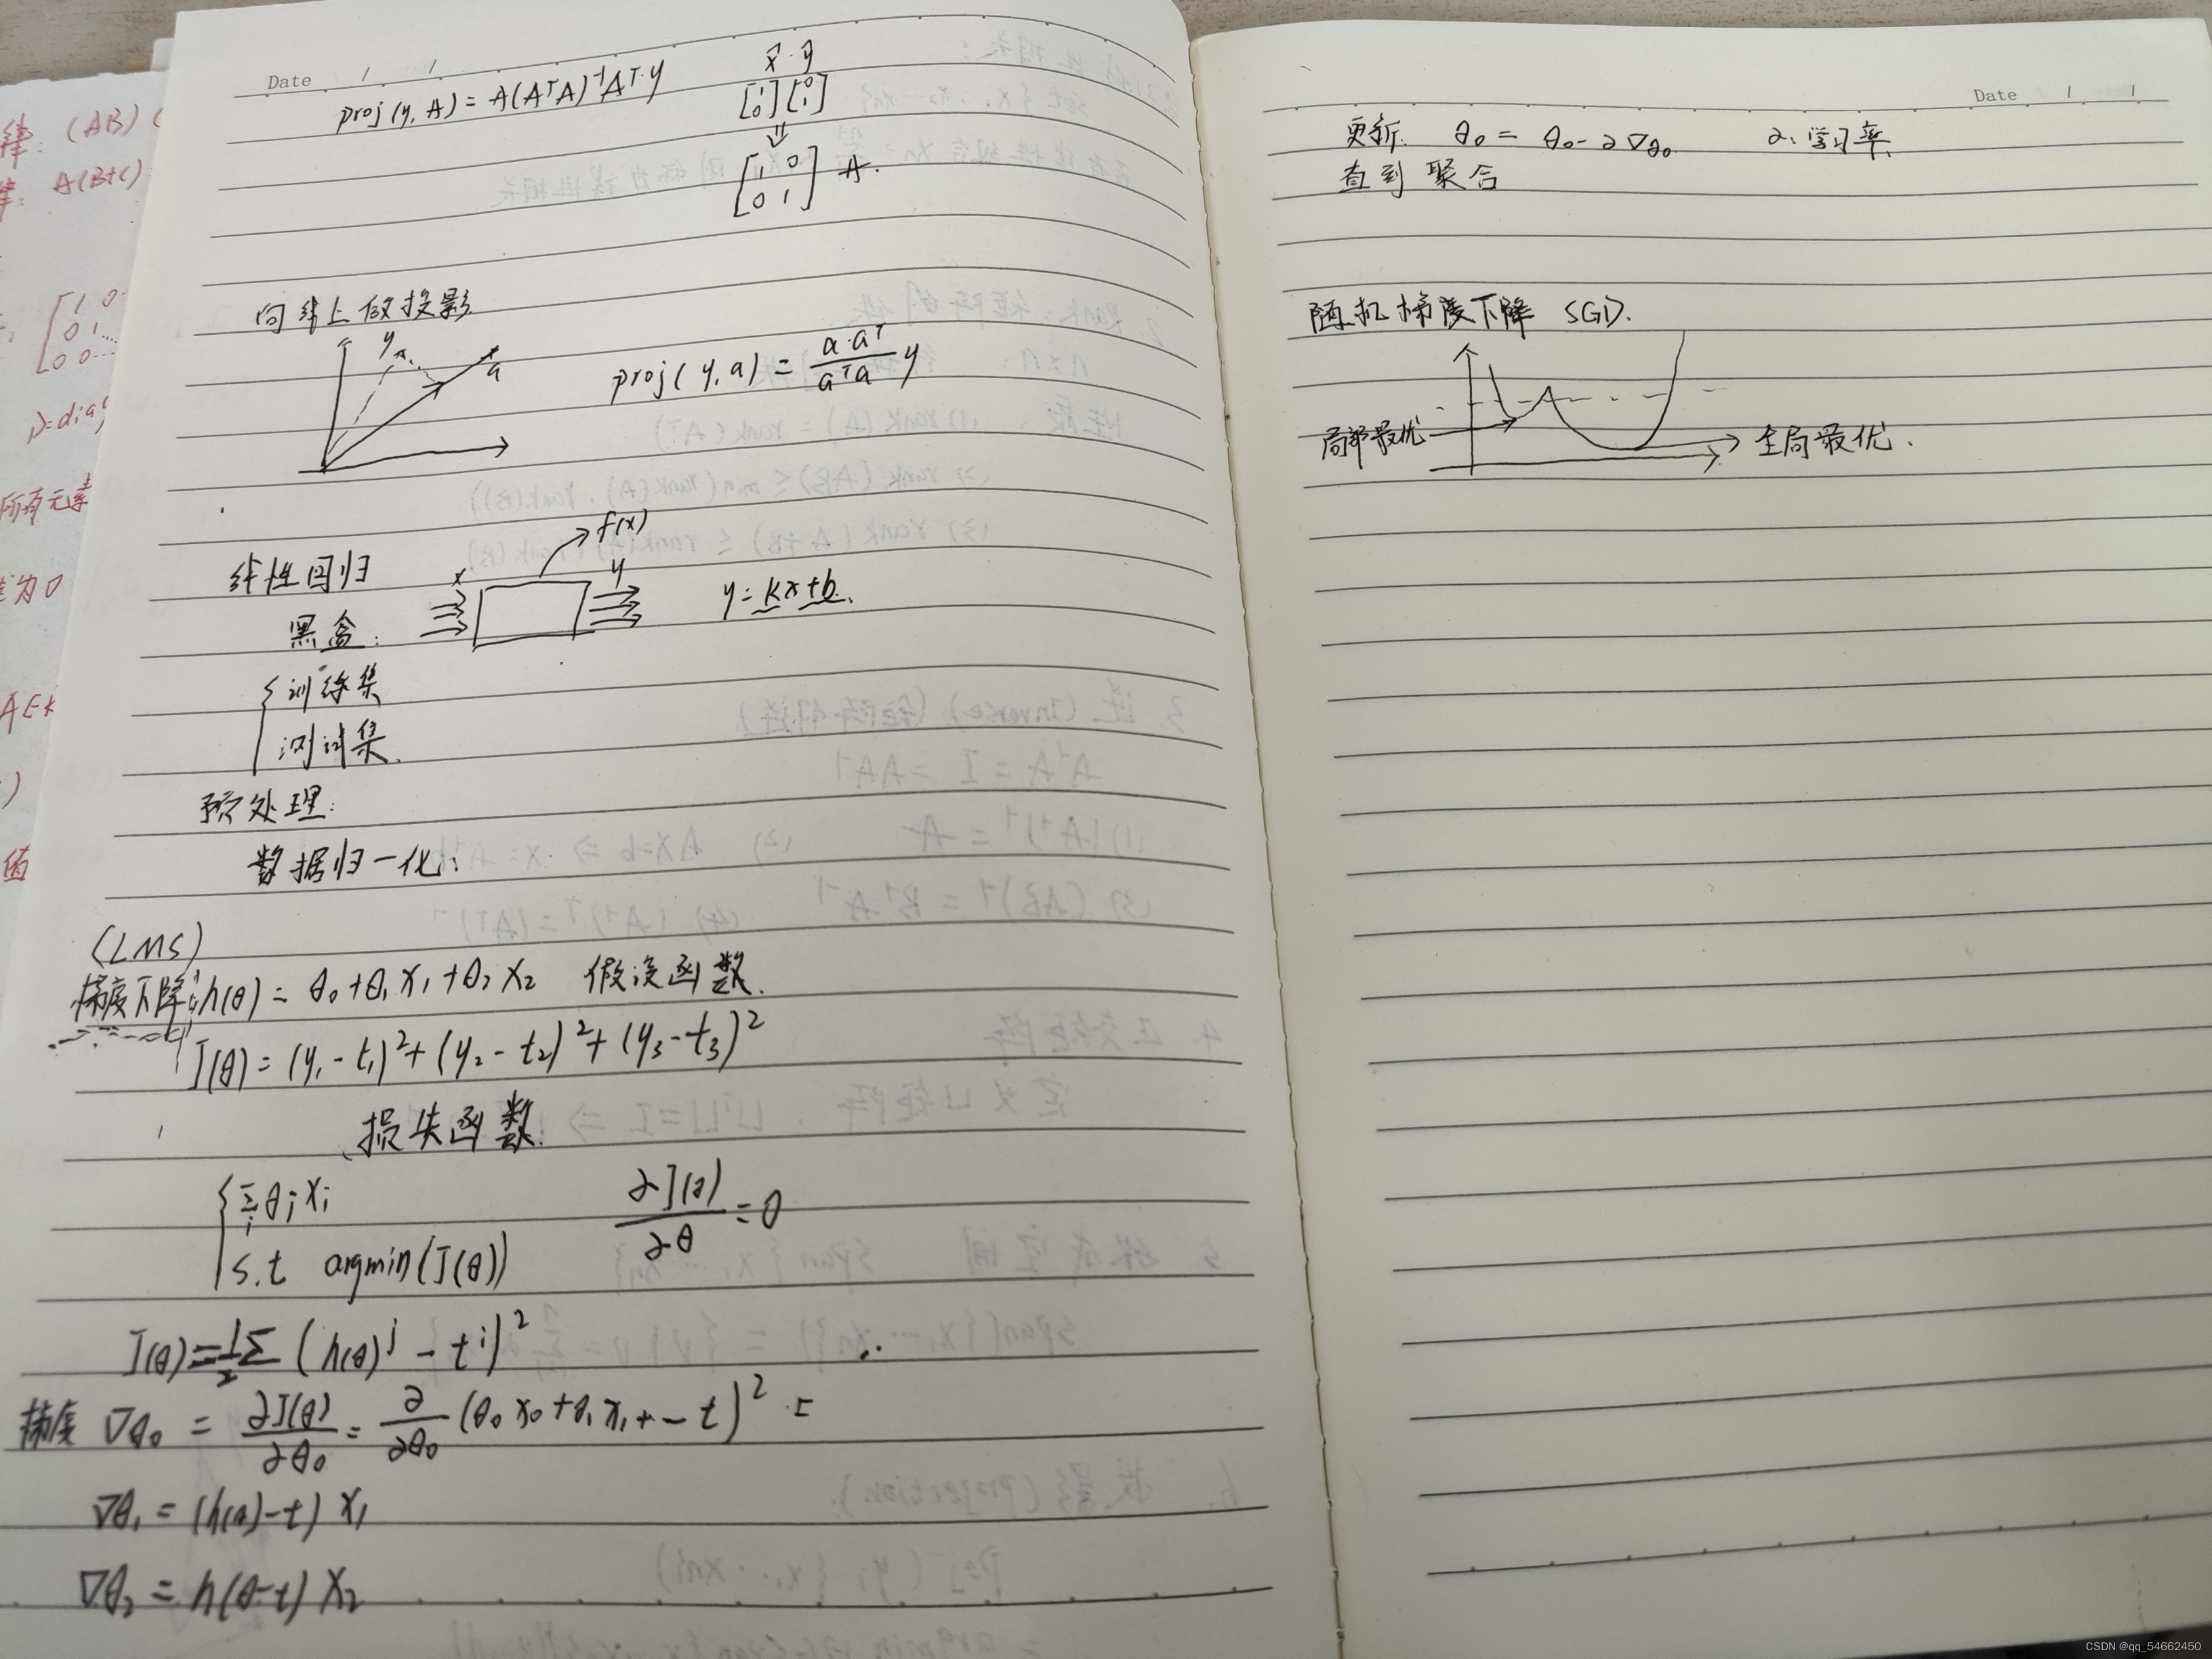 Date / /
proj(y, A) = A(AᵀA)⁻¹Aᵀ·y
x⃗ · y⃗
[1 0] [0 1]
⇓
[1 0
0 1] A.
向线上做投影
y
a
proj(y, a) = a·aᵀ / aᵀa y
线性回归
x
f(x)
y
y = kx + b.
黑盒:
{ 训练集
测试集.
预处理:
数据归一化:
(LMS)
梯度下降: h(θ) = θ₀ + θ₁x₁ + θ₂x₂ 假设函数.
J(θ) = (y₁ - t₁)² + (y₂ - t₂)² + (y₃ - t₃)²
损失函数.
{ Σᵢ θᵢxᵢ
s.t argmin(J(θ))
∂J(θ) / ∂θ = 0
J(θ) = 1/2 Σ (h(θ)ʲ - tⁱ)²
梯度 ∇θ₀ = ∂J(θ) / ∂θ₀ = ∂ / ∂θ₀ (θ₀x₀ + θ₁x₁ + - t)² =
∇θ₁ = (h(θ) - t) x₁
∇θ₂ = h(θ - t) x₂
Date / /
更新. θ₀ = θ₀ - ∂∇θ₀ ∂: 学习率.
直到 聚合
随机梯度下降 SGD.
局部最优
全局最优.
律: (AB)(
律: A(B+C)
[1 0
0 1 ...
0 0 ...
D=diag
所有元素
为0
值
CSDN @qq_54662450